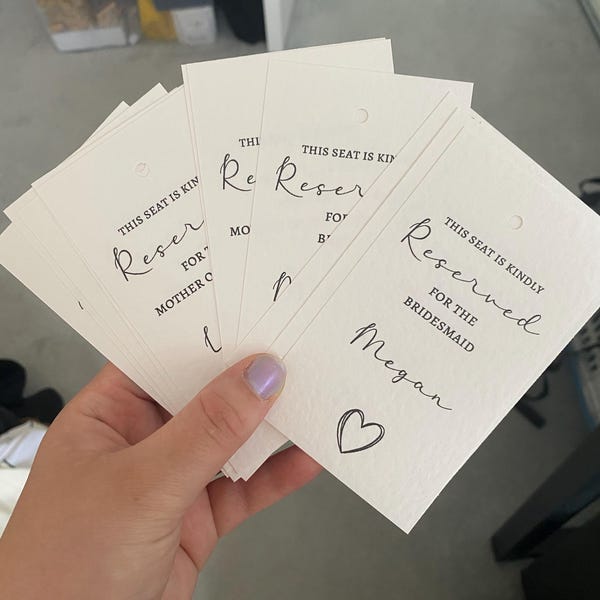 THIS SEAT IS
Reser
FOR
MOTHER O
THI
Re
MO
THIS SEAT IS
Reser
THIS SEAT IS KINDLY
Reserved
FOR THE
BRIDESMAID
Megan